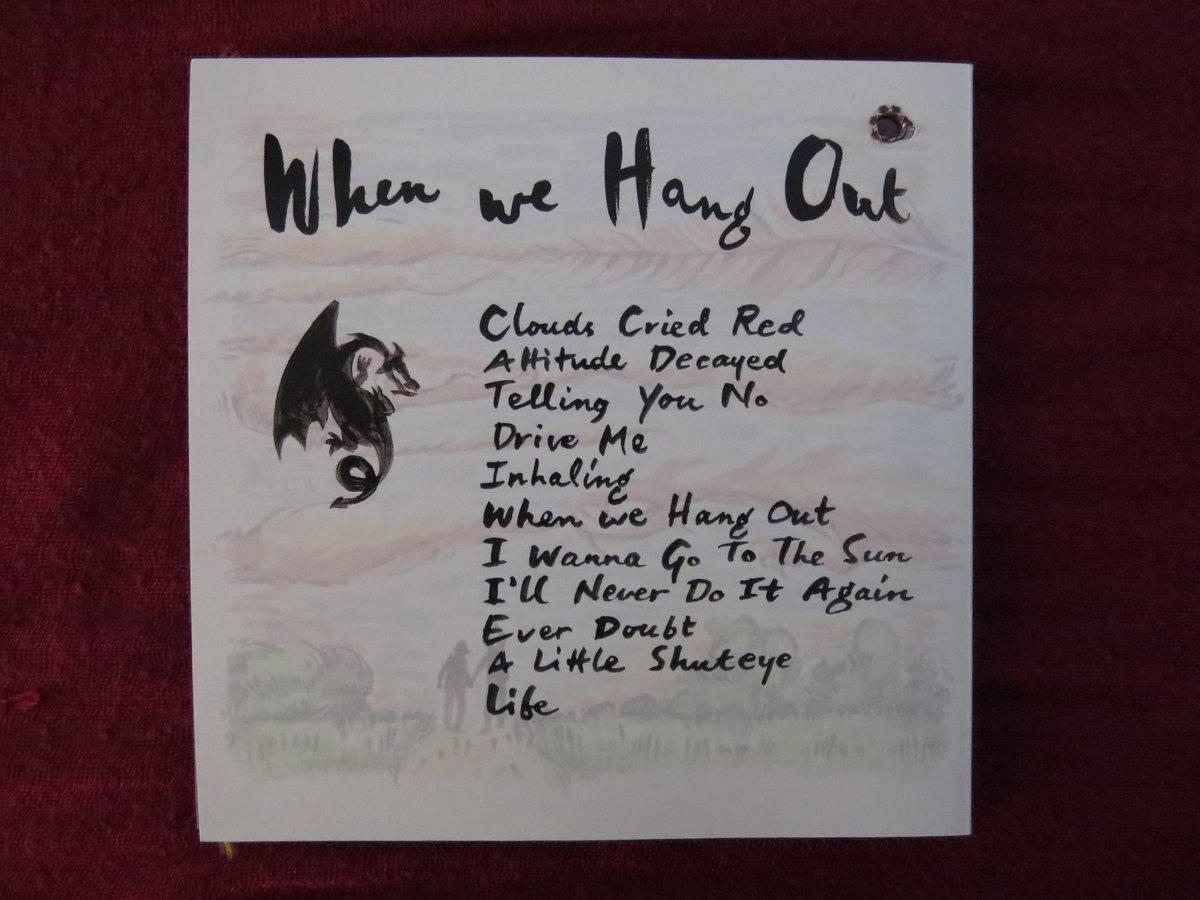 When we Hang Out
Clouds Cried Red
Attitude Decayed
Telling You No
Drive Me
Inhaling
When we Hang Out
I Wanna Go To The Sun
I'll Never Do It Again
Ever Doubt
A Little Shuteye
Life